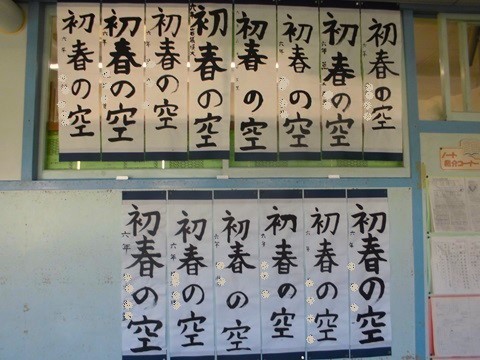 初春の空
初春の空
初春の空
初春の空
初春の空
初春の空
初春の空
初春の空
初春の空
六年
初春の空
六年
初春の空
六年
初春の空
六年
初春の空
六年
初春の空
六年
ノート
紹介コーナー